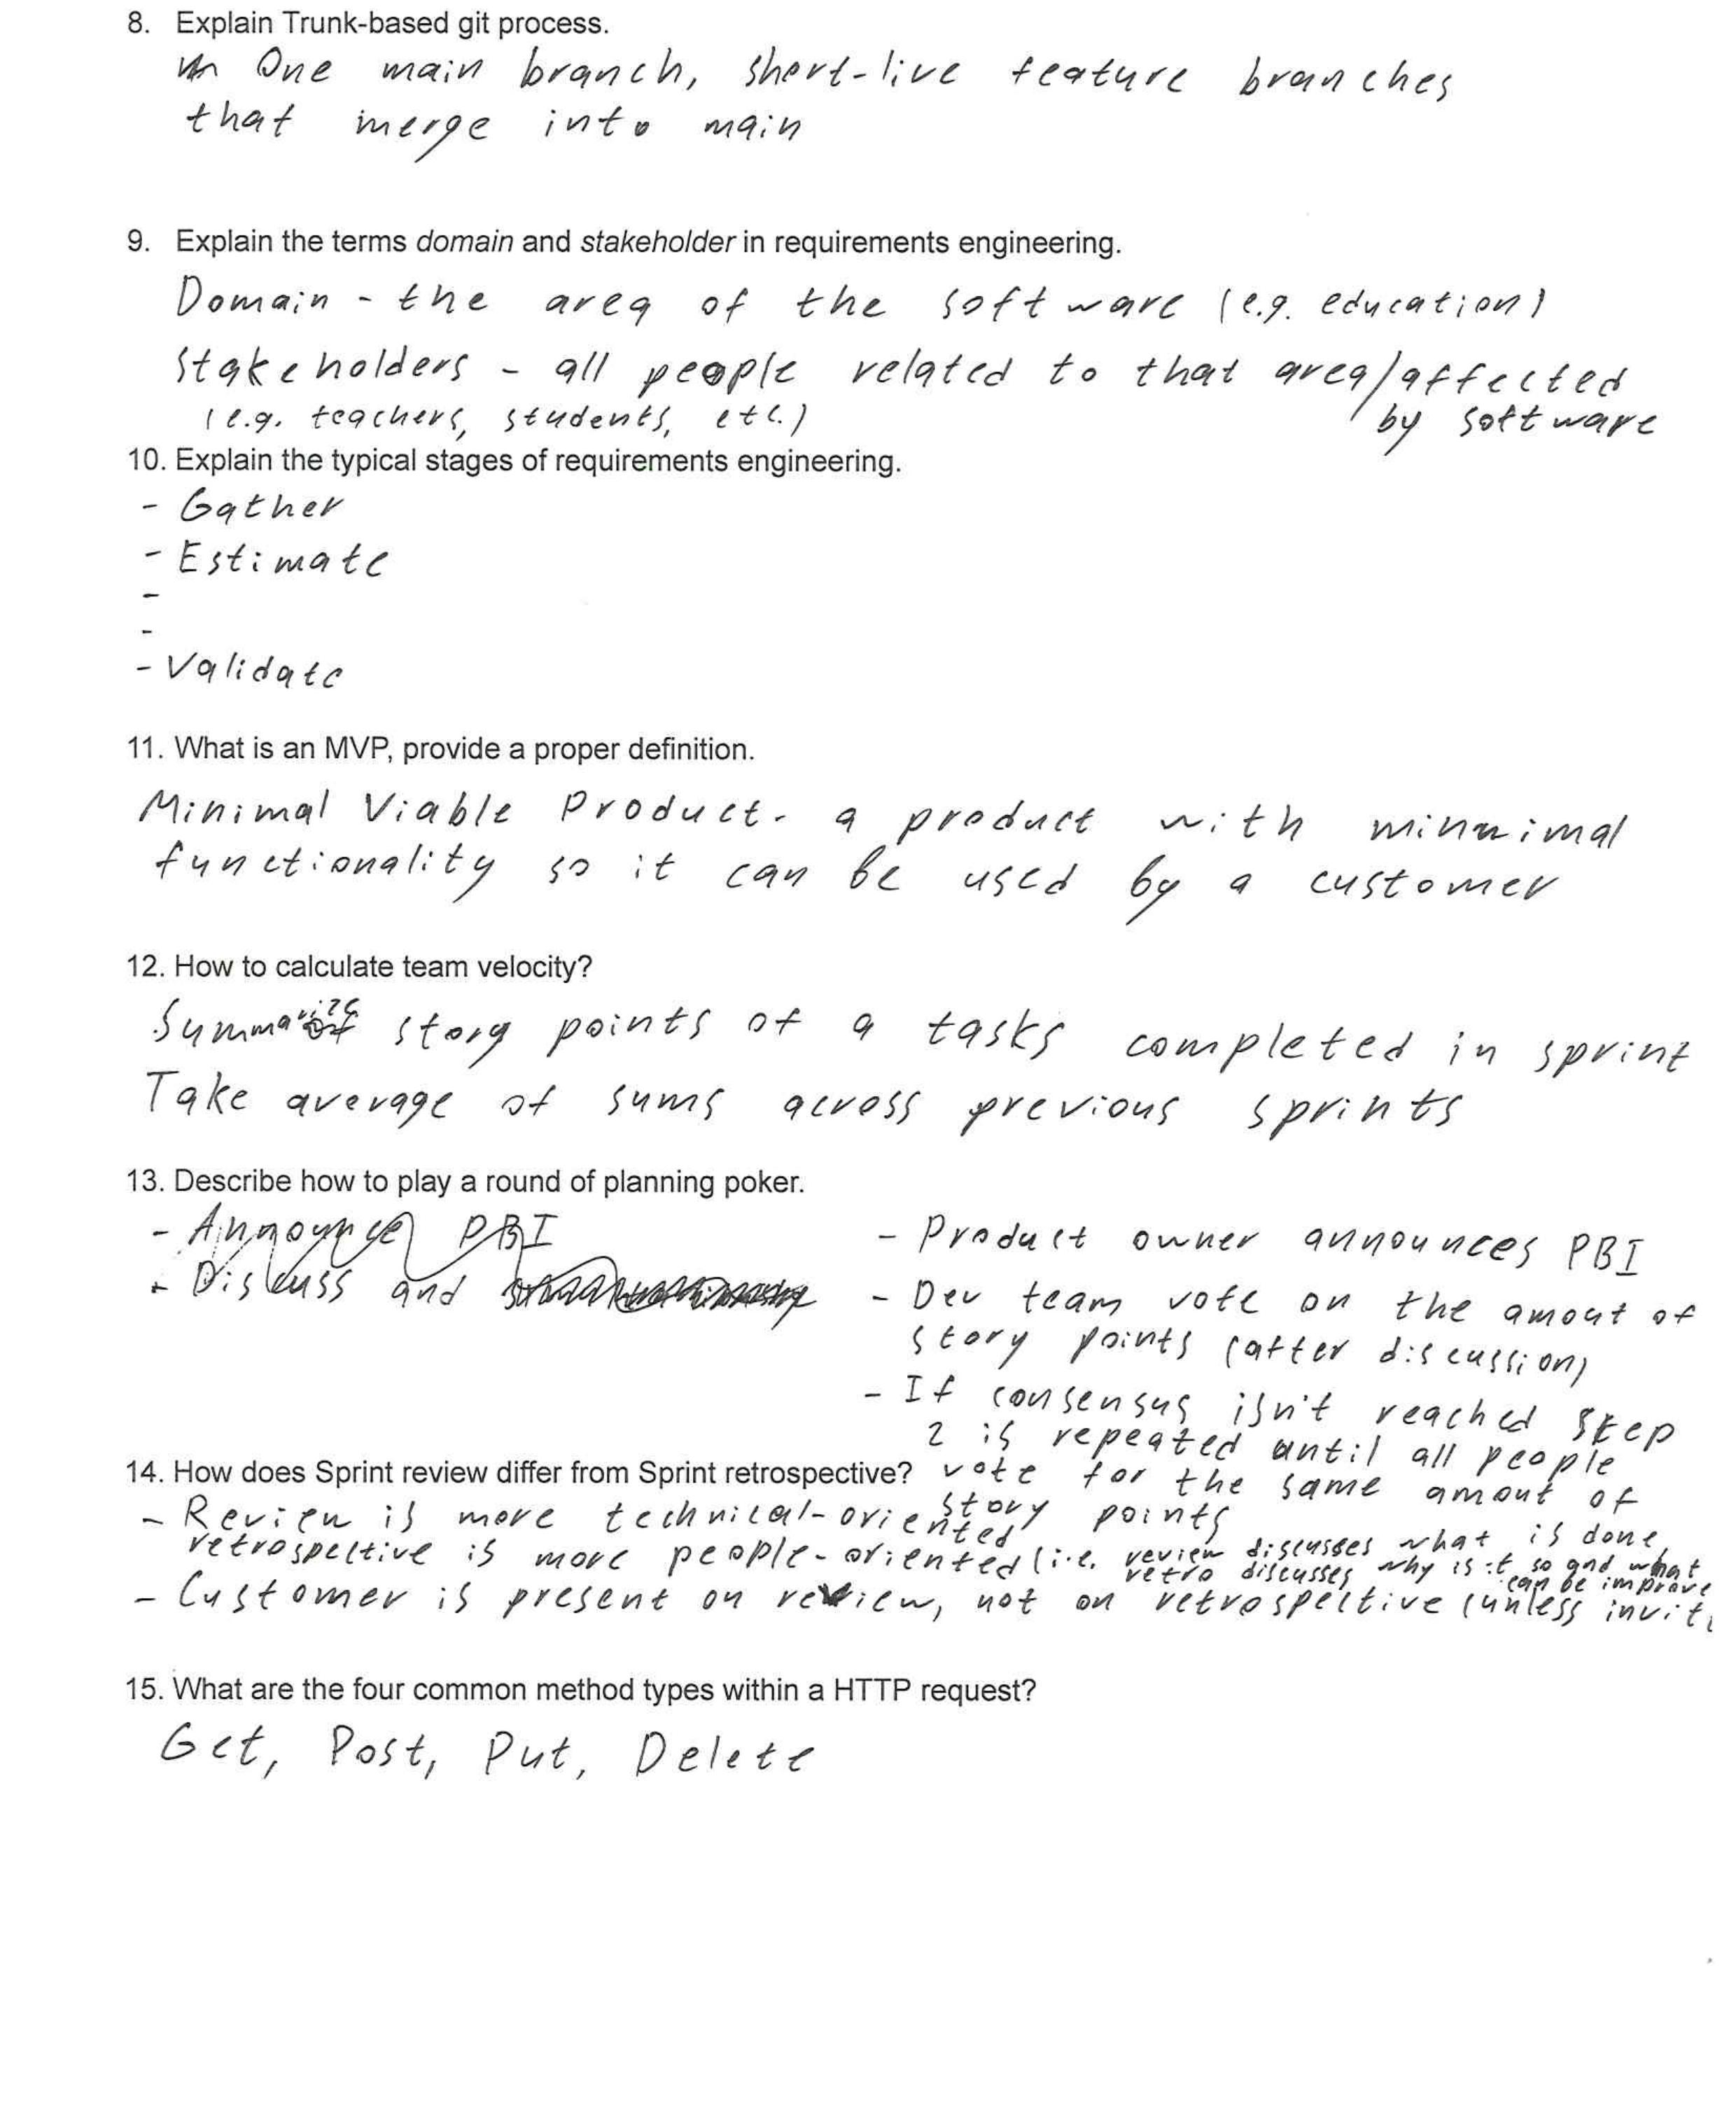 8. Explain Trunk-based git process.
One main branch, short-live feature branches
that merge into main
9. Explain the terms domain and stakeholder in requirements engineering.
Domain - the area of the software (e.g. education)
Stakeholders - all people related to that area/affected
(e.g. teachers, students, etc.) by software
10. Explain the typical stages of requirements engineering.
- Gather
- Estimate
-
-
- Validate
11. What is an MVP, provide a proper definition.
Minimal Viable Product. a product with minimal
functionality so it can be used by a customer
12. How to calculate team velocity?
Summarize story points of a tasks completed in sprint
Take average of sums across previous sprints
13. Describe how to play a round of planning poker.
- Announce PBI
- Discuss and
- Product owner announces PBI
- Dev team vote on the amout of
story points (after discussion)
- If consensus isn't reached step
2 is repeated until all people
vote for the same amout of
story points
14. How does Sprint review differ from Sprint retrospective?
- Review is more technical-oriented
retrospective is more people-oriented (i.e. review discusses what is done,
retro discusses why is it so and what
can be improve
- Customer is present on review, not on retrospective (unless invit
15. What are the four common method types within a HTTP request?
Get, Post, Put, Delete